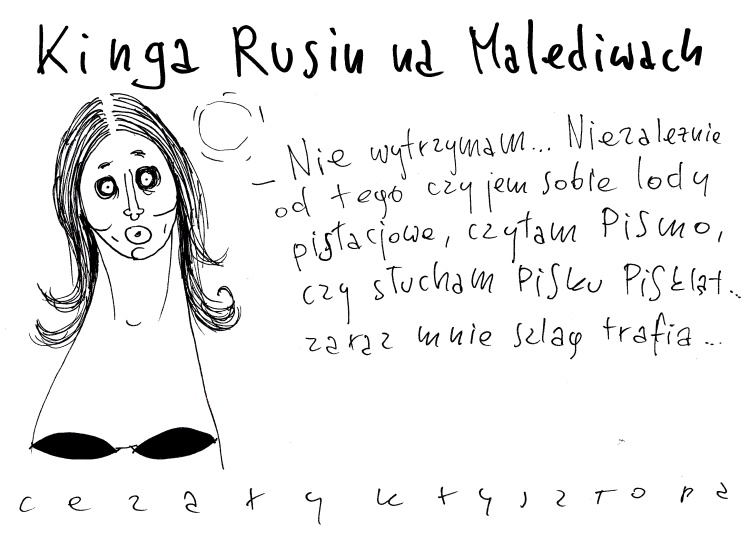 Kinga Rusin na Malediwach
– Nie wytrzymam... Niezależnie
od tego czy jem sobie lody
pistacjowe, czytam PiSmo,
czy słucham PiSku PiSkląt..
zaraz mnie szlag trafia...
cezary krysztopa